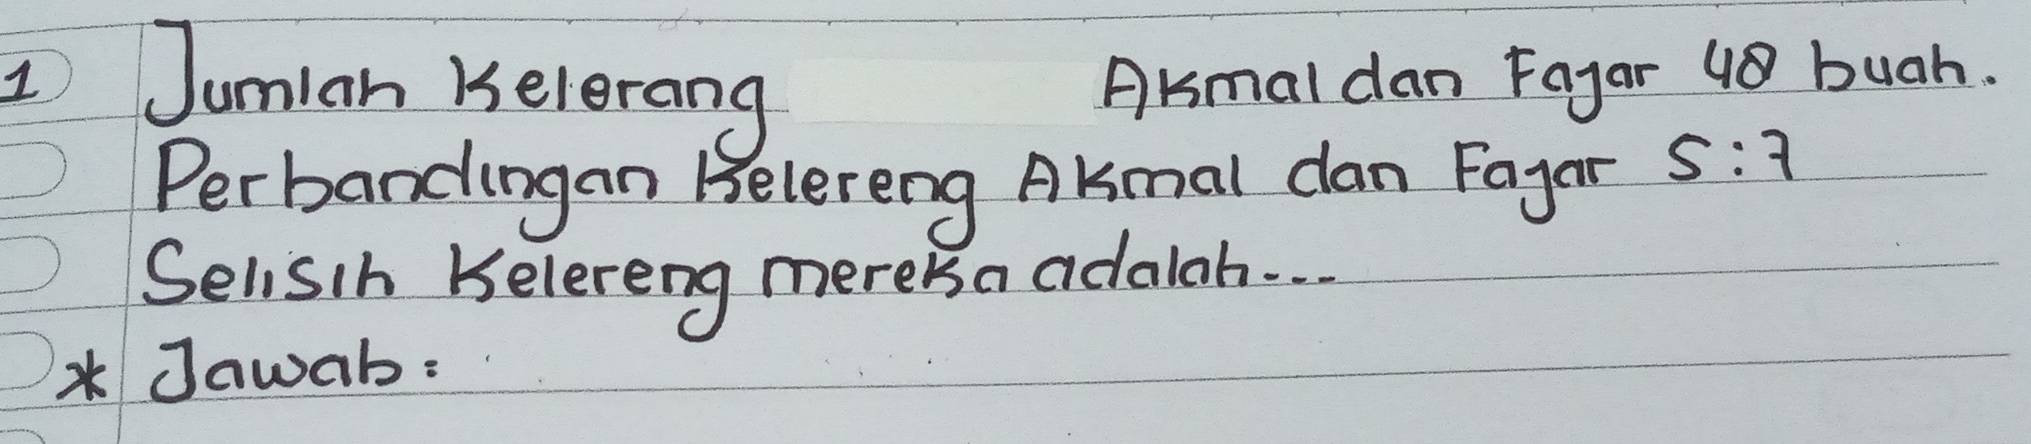 1 Jumlah Kelerang Akmal dan Fajar 48 buah.
Perbandingan Kelereng Akmal dan Fajar 5:7
Selisih Kelereng mereka adalah...
* Jawab: